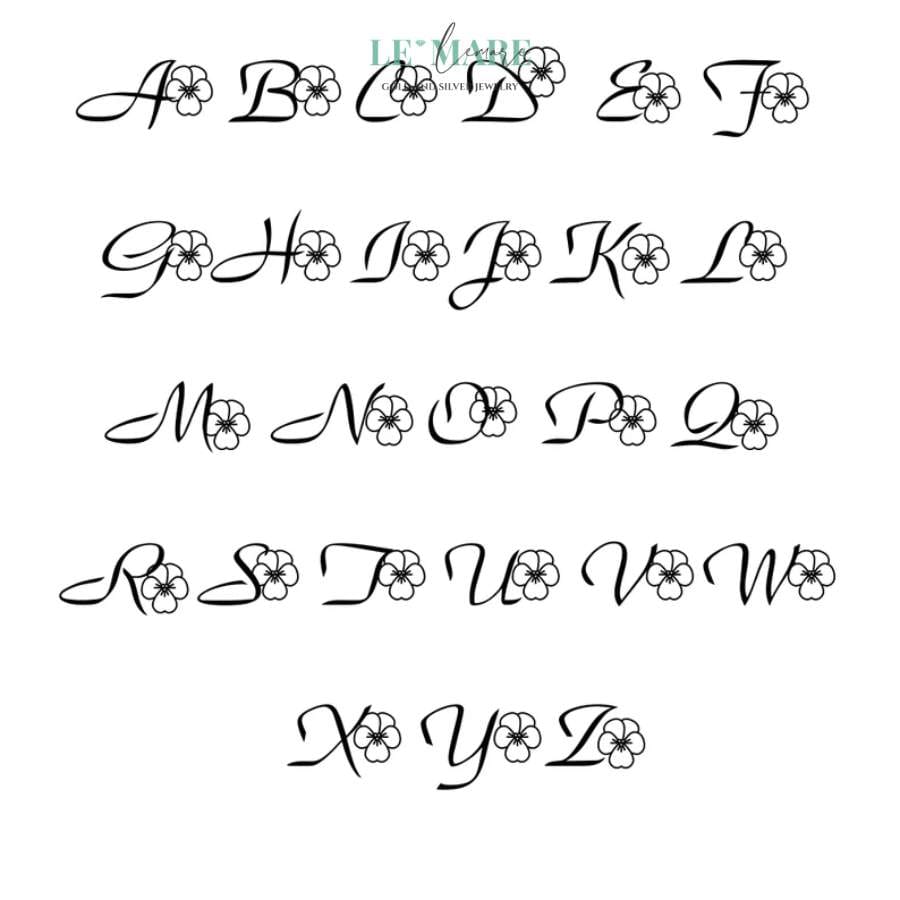 LE MARE
Lemare
GOLD AND SILVER JEWELRY
A B C D E F
G H I J K L
M N O P Q
R S T U V W
X Y Z